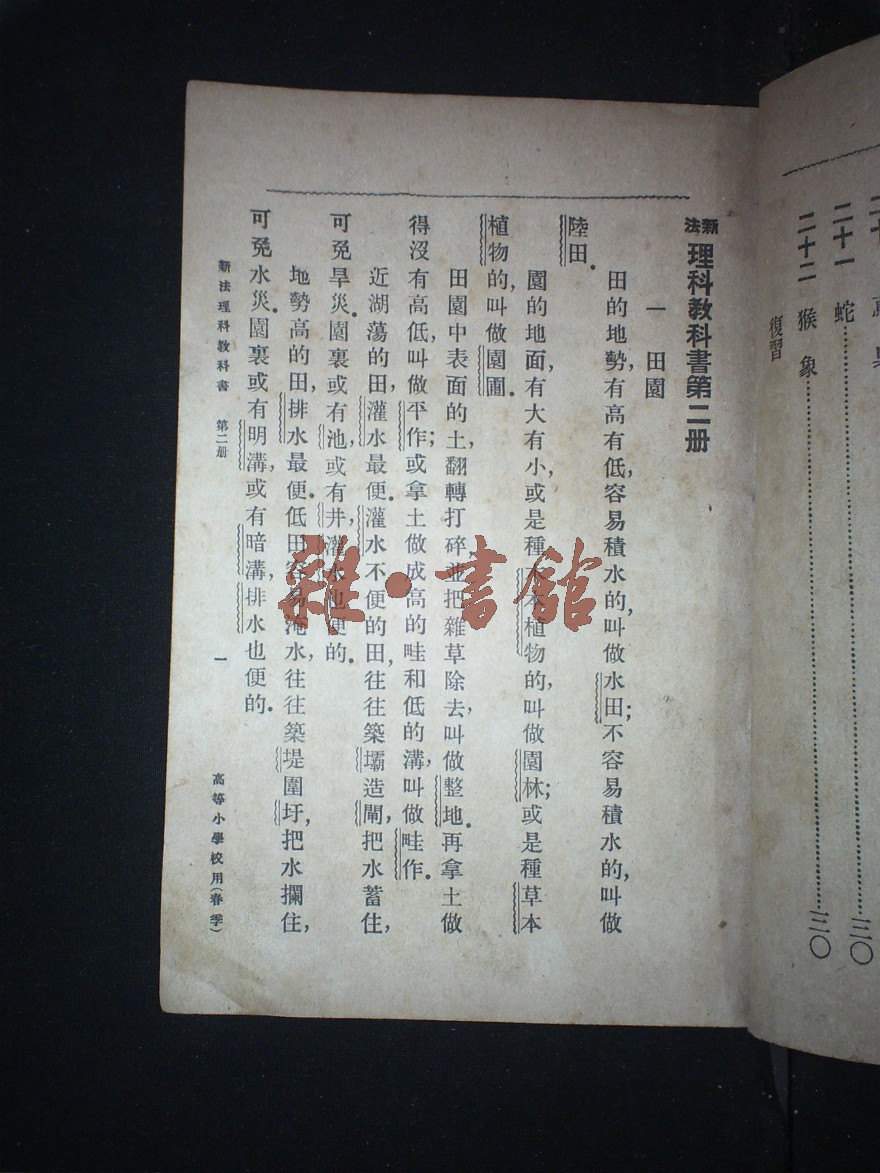 二十一 蛇……三〇
二十二 猴 象……三〇
復習
新法理科教科書第二册
一 田園
田的地勢,有高有低,容易積水的,叫做水田;不容易積水的,叫做
陸田.
園的地面,有大有小,或是種木本植物的,叫做園林;或是種草本
植物的,叫做園圃.
田園中表面的土,翻轉打碎並把雜草除去,叫做整地.再拿土做
得沒有高低,叫做平作;或拿土做成高的畦和低的溝,叫做畦作.
近湖蕩的田,灌水最便.灌水不便的田,往往築壩造閘,把水蓄住,
可免旱災.園裏或有池,或有井,灌水也便的.
地勢高的田,排水最便.低田容易淹水,往往築堤圍圩,把水攔住,
可免水災.園裏或有明溝,或有暗溝,排水也便的.
新法理科教科書 第二册 一 高等小學校用(春季)
雜·書館